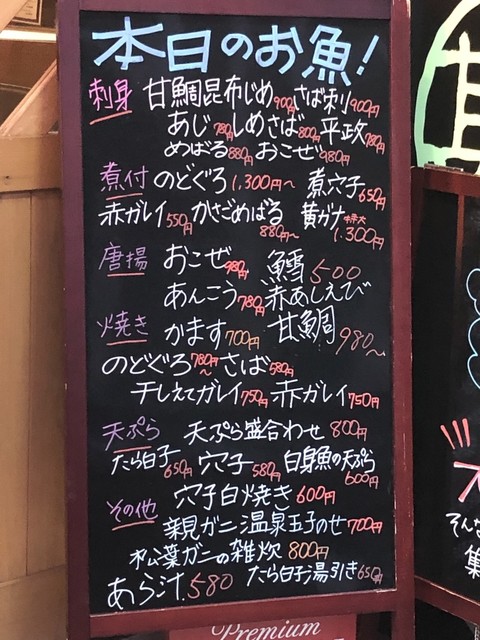 本日のお魚!
刺身 甘鯛昆布じめ900円 さば刺900円
あじ780円 しめさば800円 平政780円
めばる880円 おこぜ980円
煮付 のどぐろ1,300円〜 煮穴子650円
赤ガレイ550円 かさごめばる880円〜 黄ガナ特大1,300円
唐揚 おこぜ980円 鱈500
あんこう780円 赤あしえび
焼き かます700円 甘鯛980〜
のどぐろ780円〜 さば580円
干しえてガレイ750円 赤ガレイ750円
天ぷら 天ぷら盛合わせ800円
たら白子650円 穴子580円 白身魚の天ぷら600円
その他 穴子白焼き600円
親ガニ温泉玉子のせ700円
松葉ガニの雑炊800円
あら汁580 たら白子湯引き650円
Premium
そんな